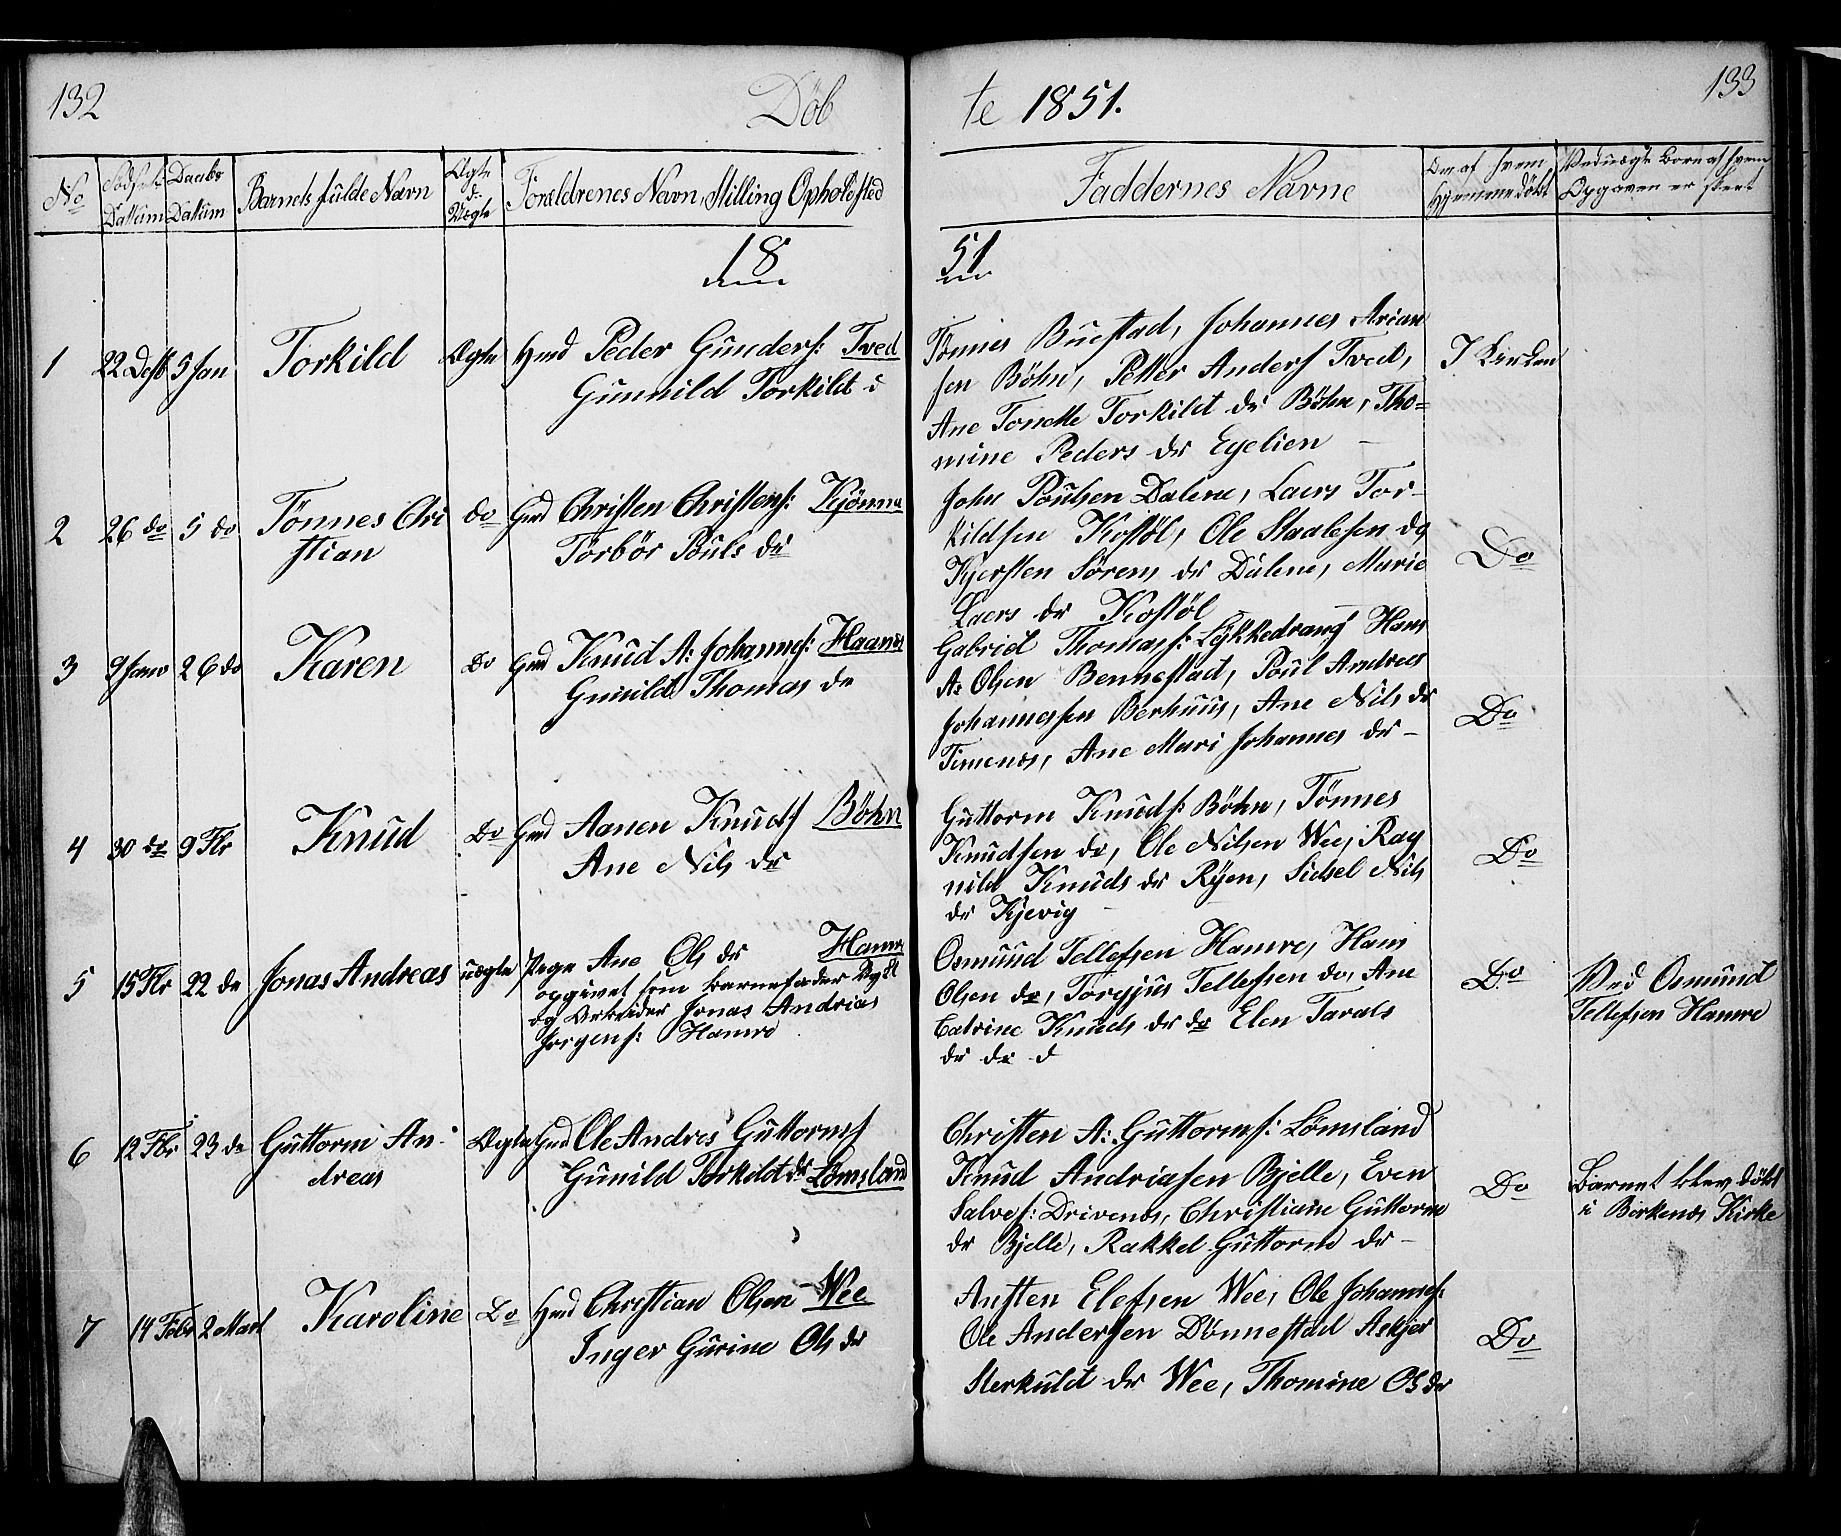 132
Döb
te 1851.
133
No
Födsels Datum
Daabs Datum
Barnets fulde Navn
Ægte
el.
Uægte
Foreldrenes Navn, Stilling Opholdsted
Faddernes Navne
Om af hvem
Hjemmedöbt
Ved uægte Born af hvem
Opgaven er skeet
18
51
1
22 Dsb
5 Jan
Torkild
Ægte
Hmd Peder Gunders: Tved
Gunnild Torkildt
Tønnes Buestad, Johannes Arian
sen Böhn, Petter Anders Tved,
Ane Tonette Torkildt dr Böhn, Tho=
mine Peders dr Egelien
I Kirken
2
26 do
5 do
Tönnes Chri
stian
do
Gmd Christen Christens: Kjönna
Torbör Pouls dr
John Poulsen Dalene, Laers Tor-
kildsen Kostöl, Ole Staalesen do
Kjersten Sörens dr Dalene, Marie
Laers dr Kostöl
Do
3
9 Janu
26 do
Karen
do
Gmd Knud A: Johannes: Haanes
Gunild Thomas dr
Gabriel Thomass: Lykkedrang Hans
A: Olsen Bennestad, Poul Andreas
Johannessen Berhuus, Ane Nils dr
Timenes, Ane Mari Johannes dr -
Do
4
30 do
9 Fbr
Knud
Do
Gmd Aanen Knuds: Böhn
Ane Nils dr
Guttorm Knuds: Böhn, Tönnes
Knudsen do, Ole Nilsen Wee, Rag
nild Knuds dr Ryen, Sidsel Nils
dr Kjevig
Do
5
15 Fbr
22 do
Jonas Andreas
uægte
Pege Ane Ols dr Hamre
opgivet som barnefader Ugkl
og Arbeider Jonas Andreas
Jorgens: Hamre
Osmund Tellefsen Hamre, Hans
Olsen do, Torgjus Tellefsen do, Ane
Catrine Knuds dr do Elen Tarals
dr do d
Do
Ved Osmund
Tellefsen Hamre
6
12 Fbr
23 do
Guttorm An-
dreas
Ægte
Gmd Ole Andres Guttorms
Gunild Torkildt dr Lömsland
Christen A: Guttorms: Lömsland
Knud Andriasen Bjelle, Even
Salves: Drivenes, Christiane Guttorm
dr Bjelle, Rakkel Guttorm dr -
Do
Barnet blev döbt
i Birkenes Kirke
7
14 Febr
2 Mart
Karoline
Do
Hmd Christian Olsen - Wee
Inger Gurine Ols dr
Austen Elefsen Wee, Ole Johannes:
Ole Andersen Dönnestad Askjer
Sterkuldt dr Wee, Thomine Ols dr
Do